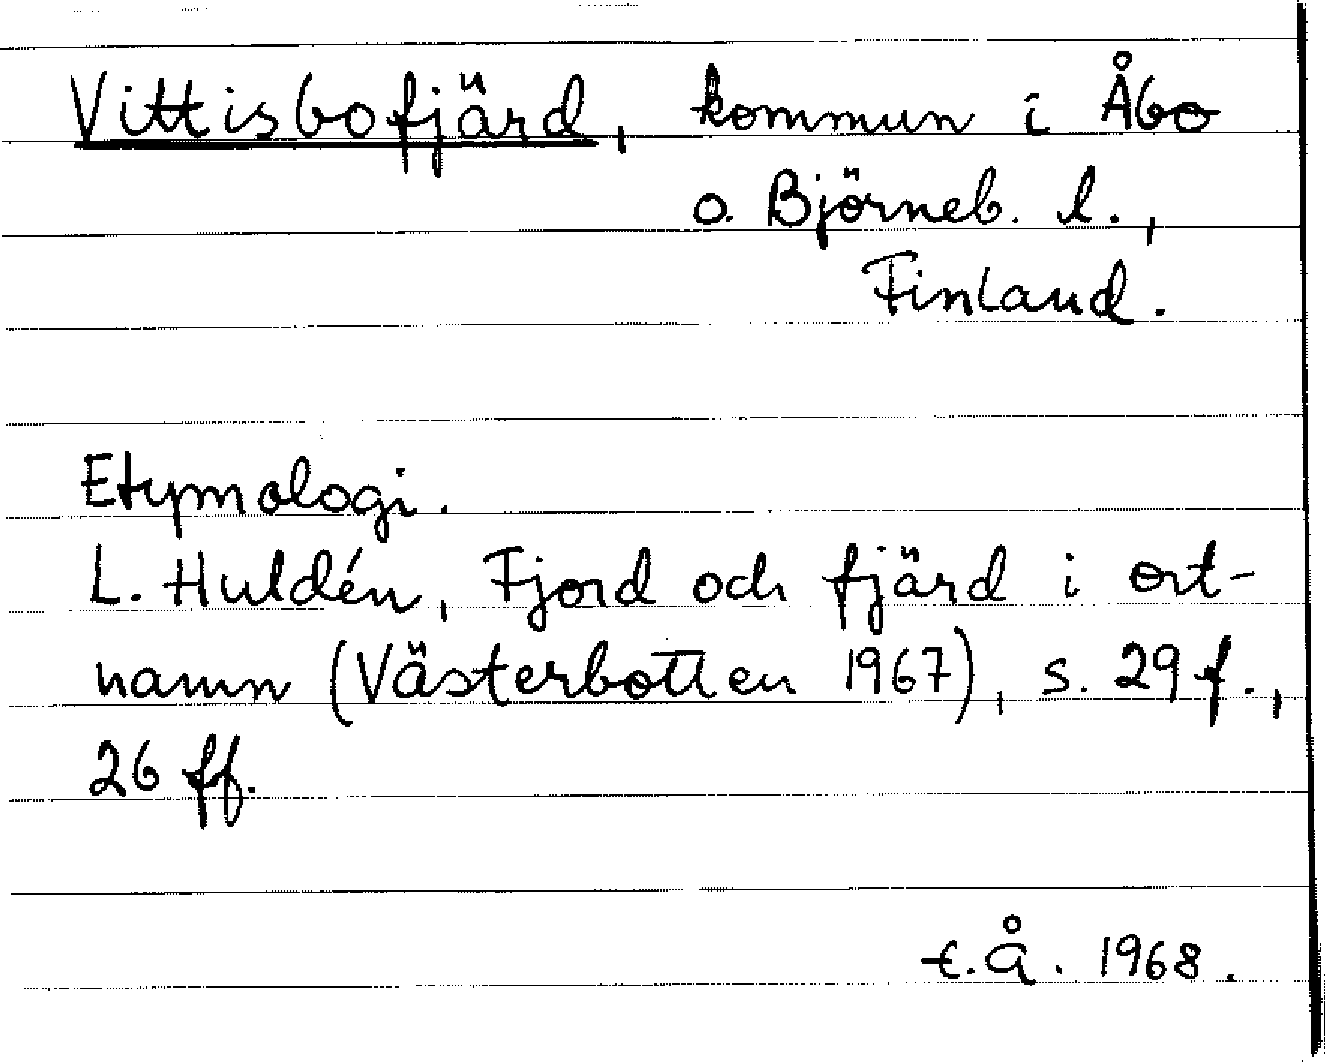 Vittisbofjärd, kommun i Åbo
o. Björneb. l.,
Finland.
Etymologi.
L. Huldén, Fjord och fjärd i ort-
namn (Västerbotten 1967), s. 29 f.,
26 ff.
t.Å. 1968.